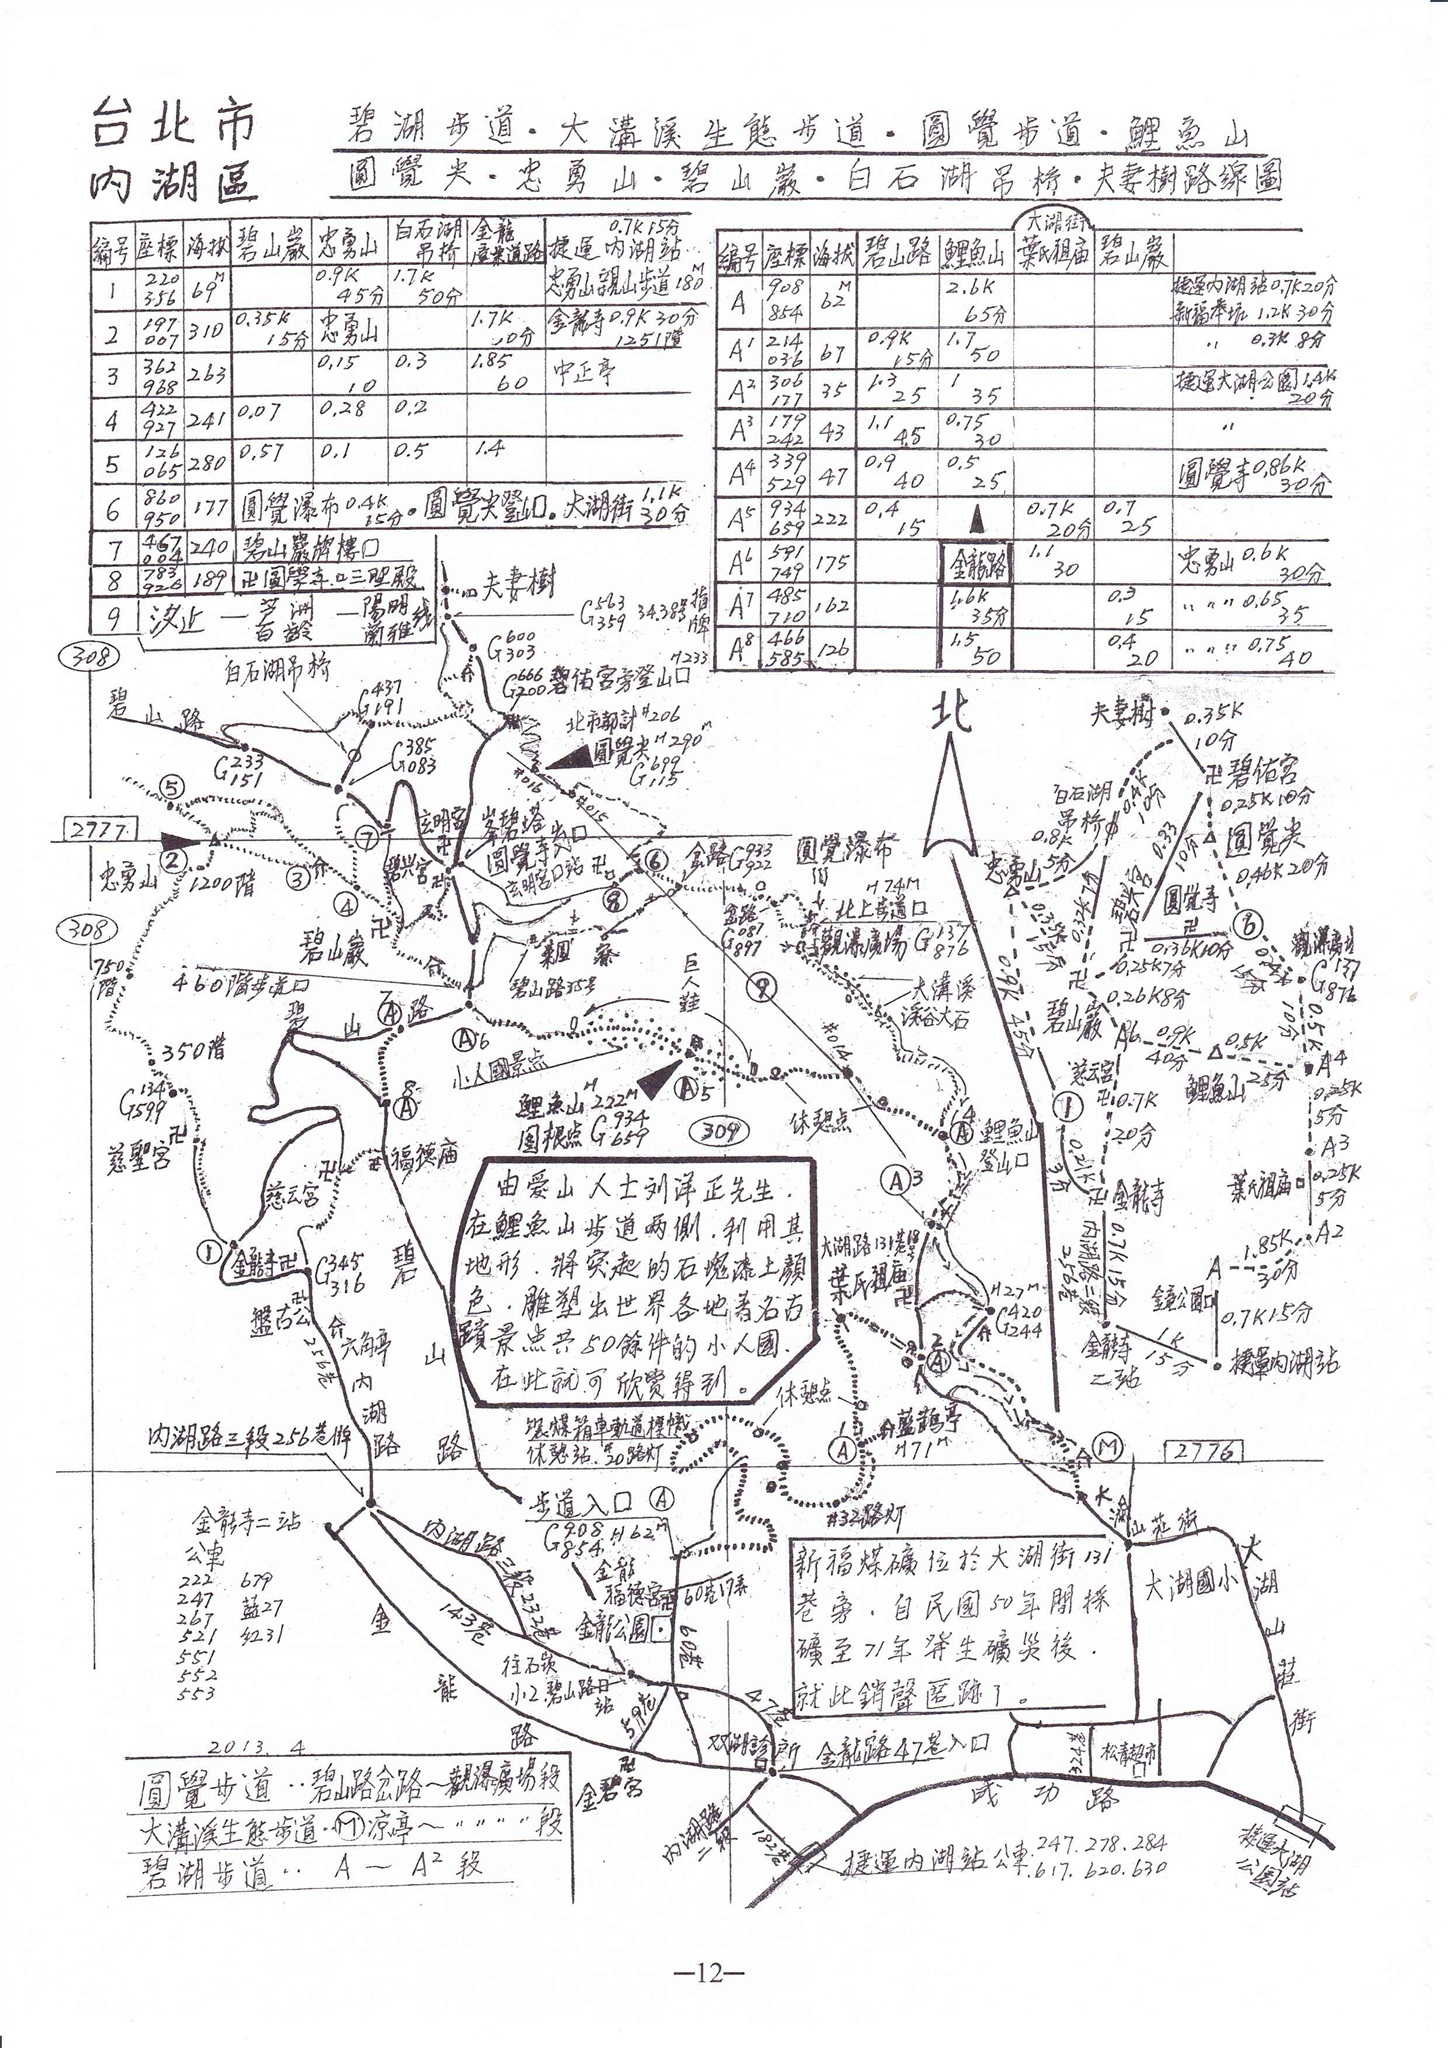 台北市
內湖區
碧湖步道．大溝溪生態步道．圓覺步道．鯉魚山
圓覺尖．忠勇山．碧山巖．白石湖吊橋．夫妻樹路線圖
編号 座標 海拔 碧山巖 忠勇山 白石湖吊橋 金龍產業道路 捷運內湖站 0.7K15分
1 220 356 69M 0.9K 45分 1.7K 50分 忠勇山親山步道180M
2 197 007 310 0.35K 15分 忠勇山 1.7K 金龍寺0.9K 30分 1251階
3 362 968 263 0.15 10 0.3 1.85 60 中正亭
4 422 927 241 0.07 0.28 0.2
5 126 065 280 0.57 0.1 0.5 1.4
6 860 950 177 圓覺瀑布0.4K 15分．圓覺尖登山口．大湖街1.1K 30分
7 467 004 240 碧山巖牌樓口
8 783 926 189 卍圓覺寺 三聖殿
9 汐止—芝洲 百齡—陽明 蘭雅線
大湖街
編号 座標 海拔 碧山路 鯉魚山 葉氏祖庙 碧山巖
A 908 854 62M 2.6K 65分 捷運內湖站0.7K20分
新福本坑 1.2K 30分
A1 214 036 67 0.9K 15分 1.7 50 〃 0.3K 8分
A2 306 177 35 1.3 25 1 35 捷運大湖公園1.4K 20分
A3 179 242 43 1.1 45 0.75 30 〃
A4 339 529 47 0.9 40 0.5 25 圓覺寺0.86K 30分
A5 934 659 222 0.4 15 ▲ 0.7K 20分 0.7 25
A6 591 749 175 金龍路 1.1 30 忠勇山 0.6K 30分
A7 485 710 162 1.6K 35分 0.3 15 〃〃〃 0.65 35
A8 466 585 126 1.5 50 0.4 20 〃〃〃 0.75 40
夫妻樹
G563 359 34.38号指牌
G600 303
308
白石湖吊橋
G666 200 碧佑宮旁登山口 H233
G437 191
碧山路
北市都計#206
圓覺尖 H290M
G699 115
北
G385 083
G233 151
#016
#015
5
7
2777
玄明宮
峯碧塔
圓覺寺岔口
玄明宮口站
碧興宮
忠勇山
2
1200階
3
4
6
8
岔路G933 922
圓覺瀑布
H74M
北上步道口
岔路 G087 897
觀瀑廣場 G137 876
308
碧山巖
750階
460階步道口
碧山路35号
巨人鞋
9
大溝溪
溪谷大石
碧山路
A7
A6
#014
350階
小人國景点
G134 599
A8
A5
鯉魚山 H222M
圖根点 G934 659
309
休憩点
A4
鯉魚山
登山口
慈聖宮
福德庙
慈云宮
A3
由愛山人士刘洋正先生．
在鯉魚山步道兩側．利用其
地形．將突起的石塊漆上顏
色．雕塑出世界各地著名古
蹟景点共50餘件的小人國．
在此就可欣賞得到。
大湖路131巷18号
葉氏祖庙
1
金龍寺
G345 316
盤古公
256巷
六角亭
碧山路
內湖路
H27M
G420 244
A2
休憩点
A1
藍鵲亭
H71M
M
運煤箱車軌道標幟
休憩站．#20路灯
內湖路三段256巷牌
2776
步道入口 A
G908 854 H62M
#32路灯
大湖山莊街
金龍寺二站
公車
222 679
247 藍27
267 紅31
521
551
552
553
內湖路三段232巷
143巷
金龍
福德宮
60巷17弄
金龍公園
60巷
往石崁
小2．碧山路口
站
59巷
47巷
金龍路
金碧宮
內湖路二段
182巷
金龍路47巷入口
新福煤礦位於大湖街131
巷旁．自民國50年開採
礦至71年發生礦災後．
就此銷聲匿跡了。
大湖國小
大湖山莊街
松青超市
成功路
捷運大湖公園站
捷運內湖站公車．247.278.284
．617.620.630
夫妻樹
0.35K
10分
碧佑宮
0.25K10分
白石湖吊橋
0.4K 10分
0.33 10分
圓覺尖
0.46K20分
0.8K
5分
忠勇山
碧興宮
圓覺寺
0.36K10分
6
觀瀑廣場
G137 876
0.25K7分
0.26K8分
碧山巖
A6 0.9K 40分 0.5K 25分
鯉魚山
A4
0.5K 10分
0.9K 45分
慈云宮
0.7K
20分
0.25K
5分
A3
0.25K
5分
葉氏祖庙
A2
1
0.21K 3分
金龍寺
內湖路三段256巷
0.7K 15分
1.85K
A 30分
金龍公園
0.7K15分
金龍寺
乙站
1K
15分
捷運內湖站
2013.4
圓覺步道‥碧山路岔路～觀瀑廣場段
大溝溪生態步道．M涼亭～〃〃〃〃段
碧湖步道‥ A～A2段
—12—